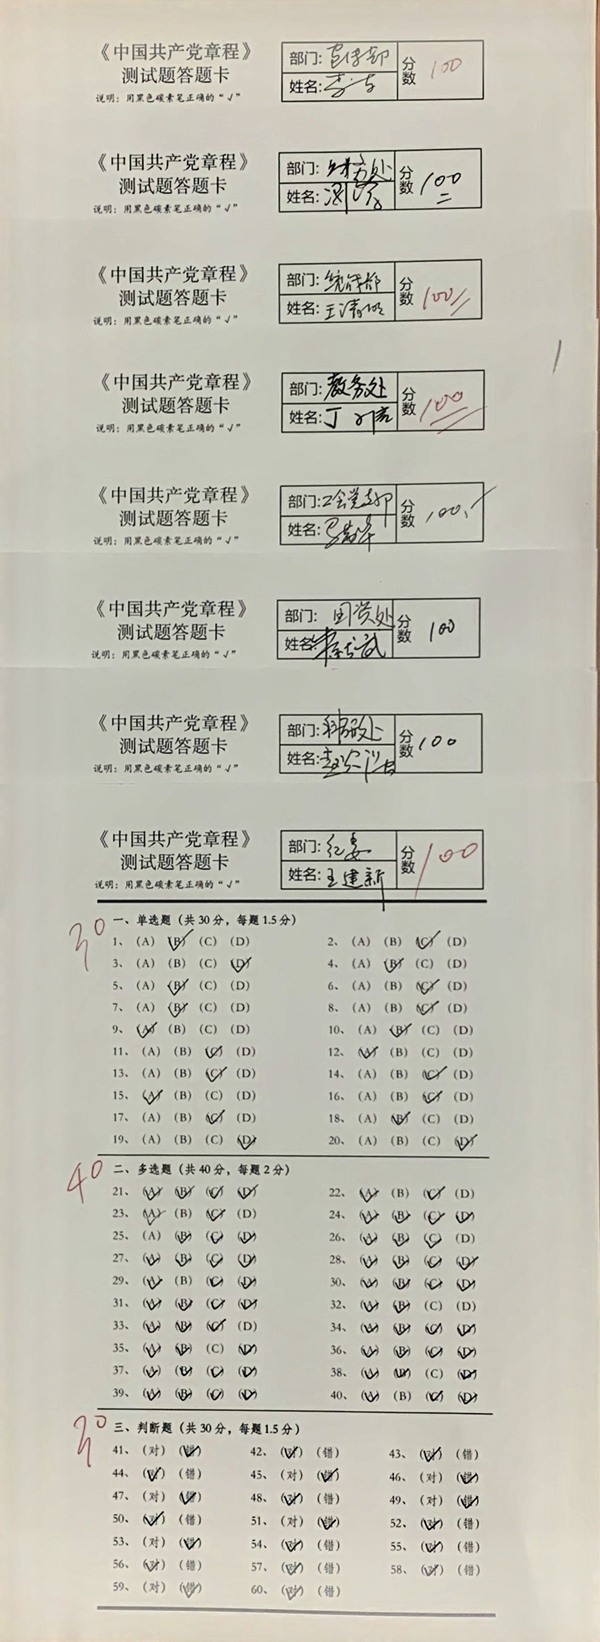 《中国共产党章程》
测试题答题卡
说明：用黑色碳素笔正确的“√”
部门：宣传部
姓名：李
分数 100
《中国共产党章程》
测试题答题卡
说明：用黑色碳素笔正确的“√”
部门：财务处
姓名：
分数 100
《中国共产党章程》
测试题答题卡
说明：用黑色碳素笔正确的“√”
部门：统战部
姓名：王
分数 100
《中国共产党章程》
测试题答题卡
说明：用黑色碳素笔正确的“√”
部门：教务处
姓名：丁
分数 100
《中国共产党章程》
测试题答题卡
说明：用黑色碳素笔正确的“√”
部门：工会党支部
姓名：
分数 100
《中国共产党章程》
测试题答题卡
说明：用黑色碳素笔正确的“√”
部门：国资处
姓名：
分数 100
《中国共产党章程》
测试题答题卡
说明：用黑色碳素笔正确的“√”
部门：科研处
姓名：
分数 100
《中国共产党章程》
测试题答题卡
说明：用黑色碳素笔正确的“√”
部门：纪委
姓名：王建新
分数 100
30 一、单选题（共30分，每题1.5分）
1、(A) (B) (C) (D) 2、(A) (B) (C) (D)
3、(A) (B) (C) (D) 4、(A) (B) (C) (D)
5、(A) (B) (C) (D) 6、(A) (B) (C) (D)
7、(A) (B) (C) (D) 8、(A) (B) (C) (D)
9、(A) (B) (C) (D) 10、(A) (B) (C) (D)
11、(A) (B) (C) (D) 12、(A) (B) (C) (D)
13、(A) (B) (C) (D) 14、(A) (B) (C) (D)
15、(A) (B) (C) (D) 16、(A) (B) (C) (D)
17、(A) (B) (C) (D) 18、(A) (B) (C) (D)
19、(A) (B) (C) (D) 20、(A) (B) (C) (D)
40 二、多选题（共40分，每题2分）
21、(A) (B) (C) (D) 22、(A) (B) (C) (D)
23、(A) (B) (C) (D) 24、(A) (B) (C) (D)
25、(A) (B) (C) (D) 26、(A) (B) (C) (D)
27、(A) (B) (C) (D) 28、(A) (B) (C) (D)
29、(A) (B) (C) (D) 30、(A) (B) (C) (D)
31、(A) (B) (C) (D) 32、(A) (B) (C) (D)
33、(A) (B) (C) (D) 34、(A) (B) (C) (D)
35、(A) (B) (C) (D) 36、(A) (B) (C) (D)
37、(A) (B) (C) (D) 38、(A) (B) (C) (D)
39、(A) (B) (C) (D) 40、(A) (B) (C) (D)
30 三、判断题（共30分，每题1.5分）
41、(对) (错) 42、(对) (错) 43、(对) (错)
44、(对) (错) 45、(对) (错) 46、(对) (错)
47、(对) (错) 48、(对) (错) 49、(对) (错)
50、(对) (错) 51、(对) (错) 52、(对) (错)
53、(对) (错) 54、(对) (错) 55、(对) (错)
56、(对) (错) 57、(对) (错) 58、(对) (错)
59、(对) (错) 60、(对) (错)